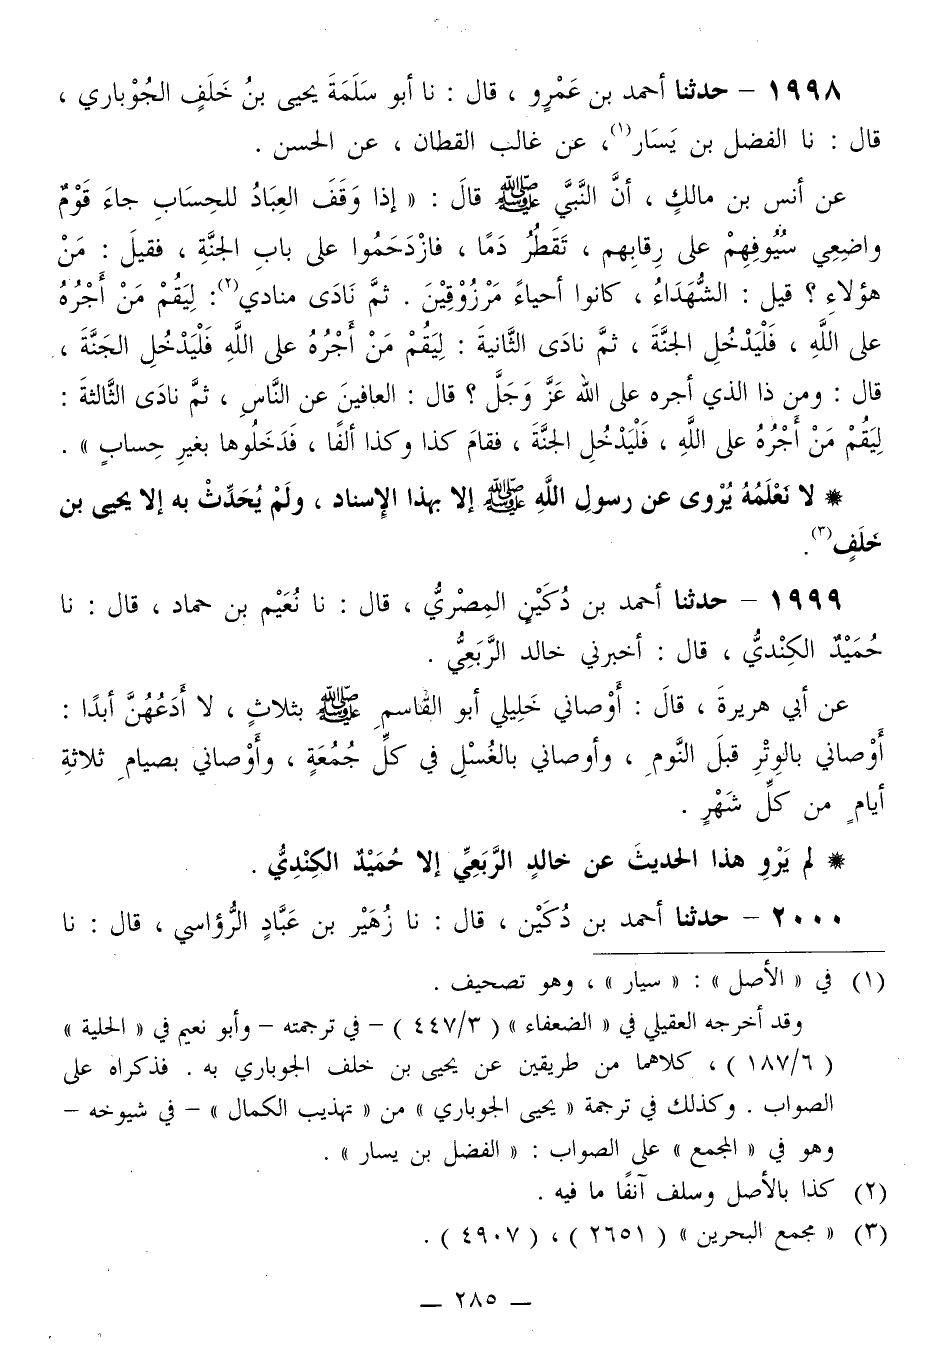 ١٩٩٨ – حدثنا أحمد بن عَمْرٍو ، قال : نا أبو سَلَمَةَ يحيى بنُ خَلَفٍ الجُوْباري ،
قال : نا الفضل بن يَسَار(١)، عن غالب القطان ، عن الحسن .
عن أنس بن مالكٍ ، أنَّ النَّبيَّ ﷺ قالَ : « إذا وَقَفَ العِبَادُ للحِسَابِ جاءَ قَوْمٌ
واضِعِي سُيُوفِهِمْ على رِقابِهم ، تَقَطُرُ دَمًا ، فازْدَحَمُوا على بابِ الجنَّةِ ، فقيلَ : مَنْ
هؤلاءِ ؟ قيل : الشُّهَدَاءُ ، كانوا أحياءً مَرْزُوْقِيْنَ . ثمَّ نَادَى منادي(٢): لِيَقُمْ مَنْ أَجْرُهُ
على اللَّهِ ، فَلْيَدْخُلِ الجنَّةَ ، ثمَّ نادَى الثَّانيةَ : لِيَقُمْ مَنْ أَجْرُهُ على اللَّهِ فَلْيَدْخُلِ الجَنَّةَ ،
قال : ومن ذا الذي أجره على الله عَزَّ وَجَلَّ ؟ قال : العافينَ عن النَّاسِ ، ثمَّ نادَى الثَّالثةَ :
لِيَقُمْ مَنْ أَجْرُهُ على اللَّهِ ، فَلْيَدْخُلِ الجنَّةَ ، فقامَ كذا وكذا ألفًا ، فَدَخَلُوها بغيرِ حِسابٍ » .
* لا نَعْلَمُهُ يُرْوى عن رسولِ اللَّهِ ﷺ إلا بهذا الإسناد ، ولَمْ يُحَدِّثْ به إلا يحيى بن
خَلَفٍ(٣).
١٩٩٩ – حدثنا أحمد بن دُكَيْنٍ المِصْرِيُّ ، قال : نا نُعَيْم بن حماد ، قال : نا
حُمَيْدٌ الكِنْديُّ ، قال : أخبرني خالد الرَّبَعِيُّ .
عن أبي هريرةَ ، قالَ : أَوْصاني خَلِيلي أبو القاسمِ ﷺ بثلاثٍ ، لا أَدَعُهُنَّ أبدًا :
أَوْصاني بالوِتْرِ قبلَ النَّومِ ، وأوصاني بالغُسْلِ في كلِّ جُمُعَةٍ ، وأَوْصاني بصيامِ ثلاثةِ
أيامٍ من كلِّ شَهْرٍ .
* لم يَرْوِ هذا الحديثَ عن خالدٍ الرَّبَعِيِّ إلا حُمَيْدٌ الكِنْدِيُّ .
٢٠٠٠ – حدثنا أحمد بن دُكَيْن ، قال : نا زُهَيْر بن عَبَّادٍ الرُّؤاسي ، قال : نا
(١) في « الأصل » : « سيار » ، وهو تصحيف .
وقد أخرجه العقيلي في « الضعفاء » ( ٤٤٧/٣ ) – في ترجمته – وأبو نعيم في « الحلية »
( ١٨٧/٦ ) ، كلاهما من طريقين عن يحيى بن خلف الجوباري به . فذكراه على
الصواب . وكذلك في ترجمة « يحيى الجوباري » من « تهذيب الكمال » – في شيوخه –
وهو في « المجمع » على الصواب : « الفضل بن يسار » .
(٢) كذا بالأصل وسلف آنفًا ما فيه .
(٣) « مجمع البحرين » ( ٢٦٥١ ) ، ( ٤٩٠٧ ) .
– ٢٨٥ –